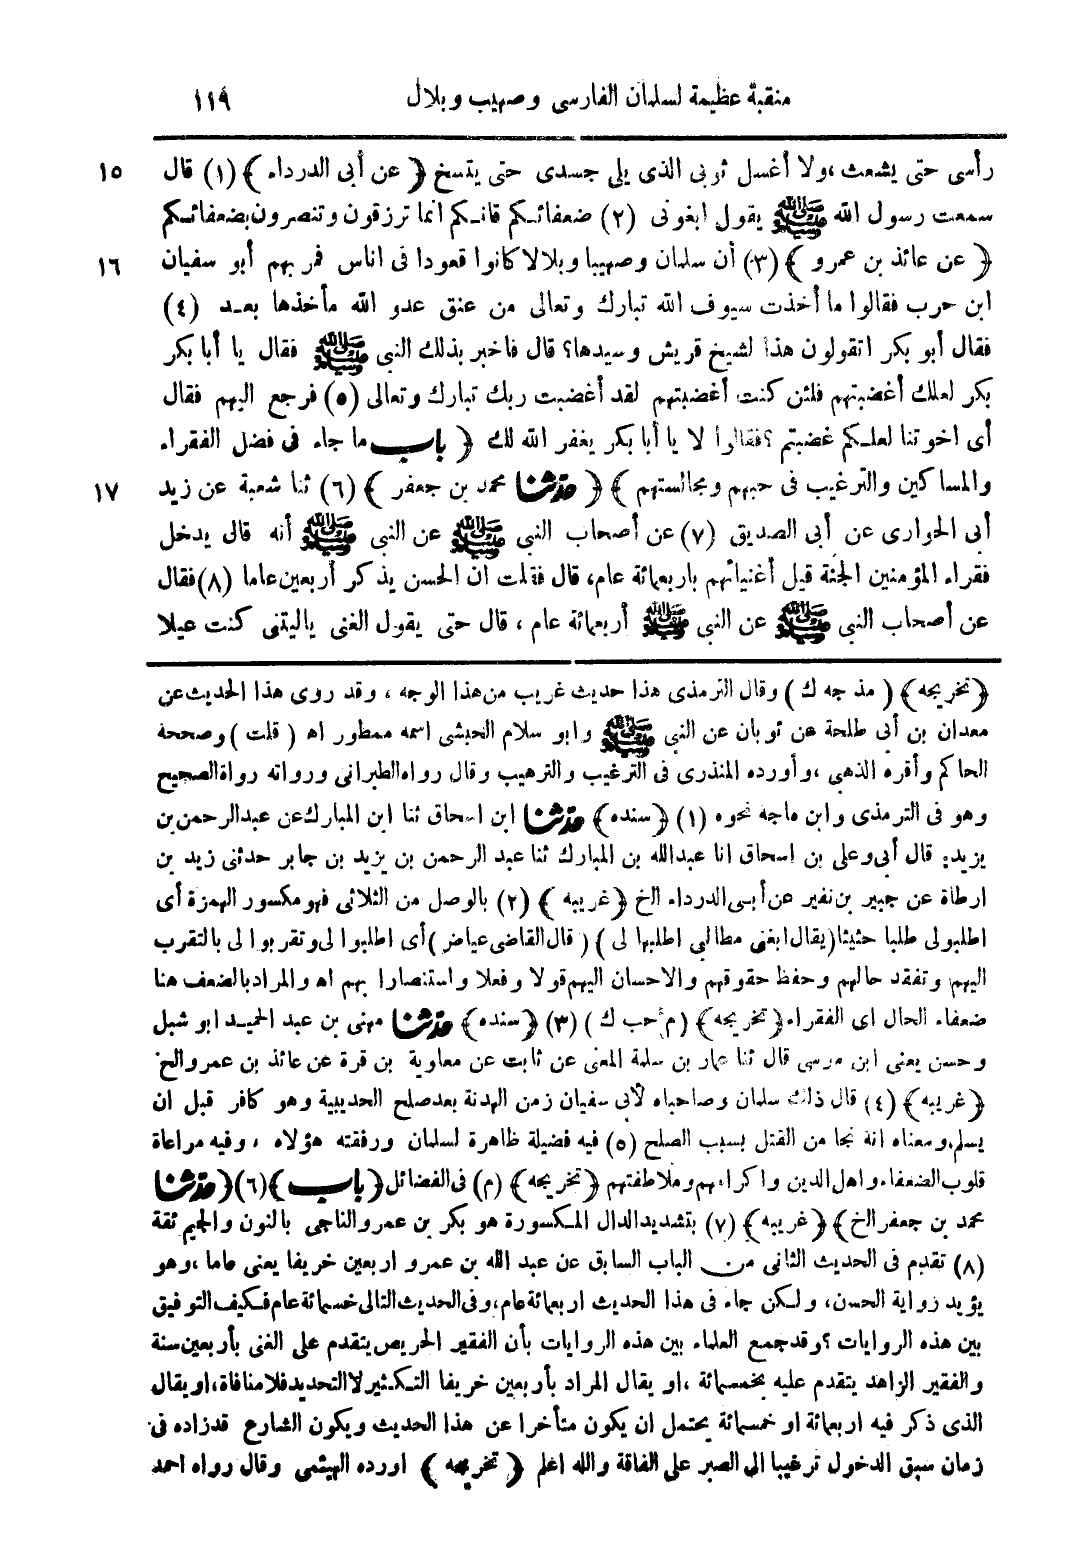 منقبة عظيمة لسلمان الفارسى وصهيب وبلال ١١٩
رأسى حتى يشعث ،ولا أغسل ثوبى الذى يلى جسدى حتى يتسخ ﴿ عن أبى الدرداء ﴾ (١) قال ١٥
سمعت رسول الله ﷺ يقول ابغونى (٢) ضعفائكم فانكم انما ترزقون وتنصرون بضعفائكم
﴿ عن عائذ بن عمرو ﴾ (٣) أن سلمان وصهيبا وبلالا كانوا قعودا فى اناس فمر بهم أبو سفيان ١٦
ابن حرب فقالوا ما أخذت سيوف الله تبارك وتعالى من عنق عدو الله مأخذها بعد (٤)
فقال أبو بكر اتقولون هذا لشيخ قريش وسيدها؟ قال فاخبر بذلك النبى ﷺ فقال يا أبا بكر
بكر لعلك أغضبتهم فلئن كنت أغضبتهم لقد أغضبت ربك تبارك وتعالى (٥) فرجع اليهم فقال
أى اخوتنا لعلكم غضبتم ؟فقالوا لا يا أبا بكر يغفر الله لك ﴿ باب ما جاء فى فضل الفقراء
والمساكين والترغيب فى حبهم ومجالستهم ﴾ ﴿ حدثنا محمد بن جعفر ﴾ (٦) ثنا شعبة عن زيد ١٧
أبى الحوارى عن أبى الصديق (٧) عن أصحاب النبى ﷺ عن النبى ﷺ أنه قال يدخل
فقراء المؤمنين الجنة قبل أغنيائهم باربعمائة عام، قال فقلت ان الحسن يذكر أربعين عاما (٨) فقال
عن أصحاب النبى ﷺ عن النبى ﷺ أربعمائة عام ، قال حتى يقول الغنى ياليتنى كنت عيلا
﴿تخريجه﴾ (مذ جه ك) وقال الترمذى هذا حديث غريب من هذا الوجه ، وقد روى هذا الحديث عن
معدان بن أبى طلحة عن ثوبان عن النبى ﷺ وابو سلام الحبشى اسمه ممطور اه (قلت) وصححه
الحاكم وأقره الذهبى ،وأورده المنذرى فى الترغيب والترهيب وقال رواه الطبرانى ورواته رواة الصحيح
وهو فى الترمذى وابن ماجه نحوه (١) ﴿سنده﴾ حدثنا ابن اسحاق ثنا ابن المبارك عن عبد الرحمن بن
يزيد: قال أبى وعلى بن اسحاق انا عبدالله بن المبارك ثنا عبد الرحمن بن يزيد بن جابر حدثنى زيد بن
ارطاة عن جبير بن نفير عن أبى الدرداء الخ ﴿غريبه﴾ (٢) بالوصل من الثلاثى فهو مكسور الهمزة أى
اطلبوا لى طلبا حثيثا (يقال ابغنى مطالبى اطلبها لى) (قال القاضى عياض) أى اطلبوا لى وتقربوا لى بالتقرب
اليهم وتفقد حالهم وحفظ حقوقهم والاحسان اليهم قولا وفعلا واستنصارا بهم اه والمراد بالضعف هنا
ضعفاء الحال اى الفقراء ﴿تخريجه﴾ (م حب ك) (٣) ﴿سنده﴾ حدثنا مهنى بن عبد الحميد ابو شبل
وحسن يعنى ابن موسى قال ثنا حماد بن سلمة المعنى عن ثابت عن معاوية بن قرة عن عائذ بن عمرو الخ
﴿غريبه﴾ (٤) قال ذلك سلمان وصاحباه لأبى سفيان زمن الهدنة بعد صلح الحديبية وهو كافر قبل ان
يسلم ومعناه انه نجا من القتل بسبب الصلح (٥) فيه فضيلة ظاهرة لسلمان ورفقته هؤلاء ، وفيه مراعاة
قلوب الضعفاء واهل الدين واكرامهم وملاطفتهم ﴿تخريجه﴾ (م) فى الفضائل ﴿باب﴾ (٦) ﴿حدثنا
محمد بن جعفر الخ﴾ ﴿غريبه﴾ (٧) بتشديد الدال المكسورة هو بكر بن عمرو الناجى بالنون والجيم ثقة
(٨) تقدم فى الحديث الثانى من الباب السابق عن عبد الله بن عمرو اربعين خريفا يعنى عاما ،وهو
يؤيد رواية الحسن، ولكن جاء فى هذا الحديث اربعمائة عام، وفى الحديث التالى خسمائة عام فكيف التوفيق
بين هذه الروايات ؟وقد جمع العلماء بين هذه الروايات بأن الفقير الحريص يتقدم على الغنى بأربعين سنة
والفقير الزاهد يتقدم عليه بخمسمائة ،او يقال المراد بأربعين خريفا التكثير لا التحديد فلا منافاة، او يقال
الذى ذكر فيه اربعمائة او خمسمائة يحتمل ان يكون متأخرا عن هذا الحديث ويكون الشارع قد زاده فى
زمان سبق الدخول ترغيبا الى الصبر على الفاقة والله اعلم ﴿ تخريجه ﴾ اورده الهيثمى وقال رواه احمد